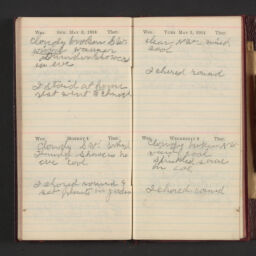 Wea. SUN. MAY 3, 1914 Ther.
Cloudy broken S W
wind warmer
Thundershowers
in eve
I staid at home
rest went to church
Wea. MONDAY 4 Ther.
Cloudy S W wind
Thunder Showers in
eve cool
I chored round &
set plants in garden
Wea. TUES. MAY 5, 1914 Ther.
clear N W wind
cool
I chored round
Wea. WEDNESDAY 6 Ther.
Cloudy broken N W
very cool
Sprinkled some
in eve
I chored round